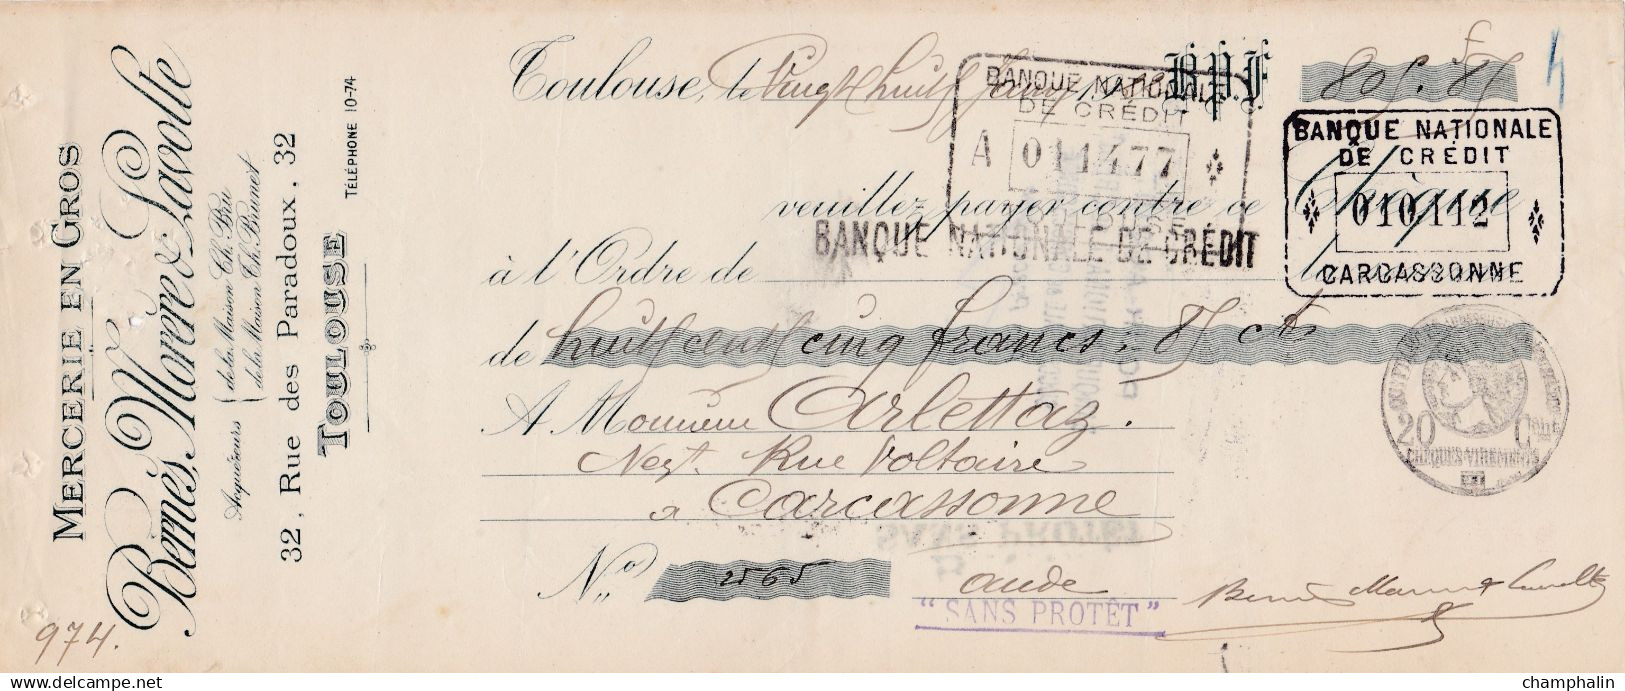 MERCERIE EN GROS
Bernès, Morère & Lavolte
Acquéreurs
de la Maison Ch. Bru
de la Maison Th. Brunet
32, Rue des Paradoux, 32
TOULOUSE
TÉLÉPHONE 10-74
974.
Toulouse, le Vingt huit
B.P.F. 805.85
BANQUE NATIONALE
DE CRÉDIT
A 011477
BANQUE NATIONALE
DE CRÉDIT
010112
CARCASSONNE
veuillez payer contre ce Chèque
à l'Ordre de
BANQUE NATIONALE DE CRÉDIT
de huit cent cinq francs, 85 cts
A Monsieur Arlettaz.
Negt. Rue Voltaire
à Carcassonne
Aude
20 Cent
CHÈQUES VIREMENTS
N° 2565
"SANS PROTÊT"
Bernès Morère & Lavolte
champhalin